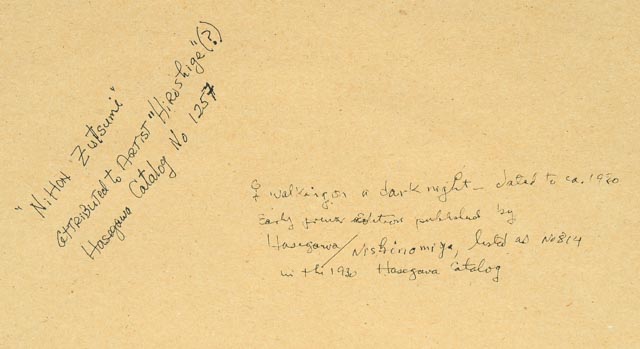 "NiHon Zutsumi"
attributed to ARTIST "HiRoshige" (?)
Hasegawa Catalog No 1257
♀ walking on a dark night – dated to ca. 1930
Early edition published by
Hasegawa/Nishinomiya, listed as No 814
in the 1930 Hasegawa Catalog